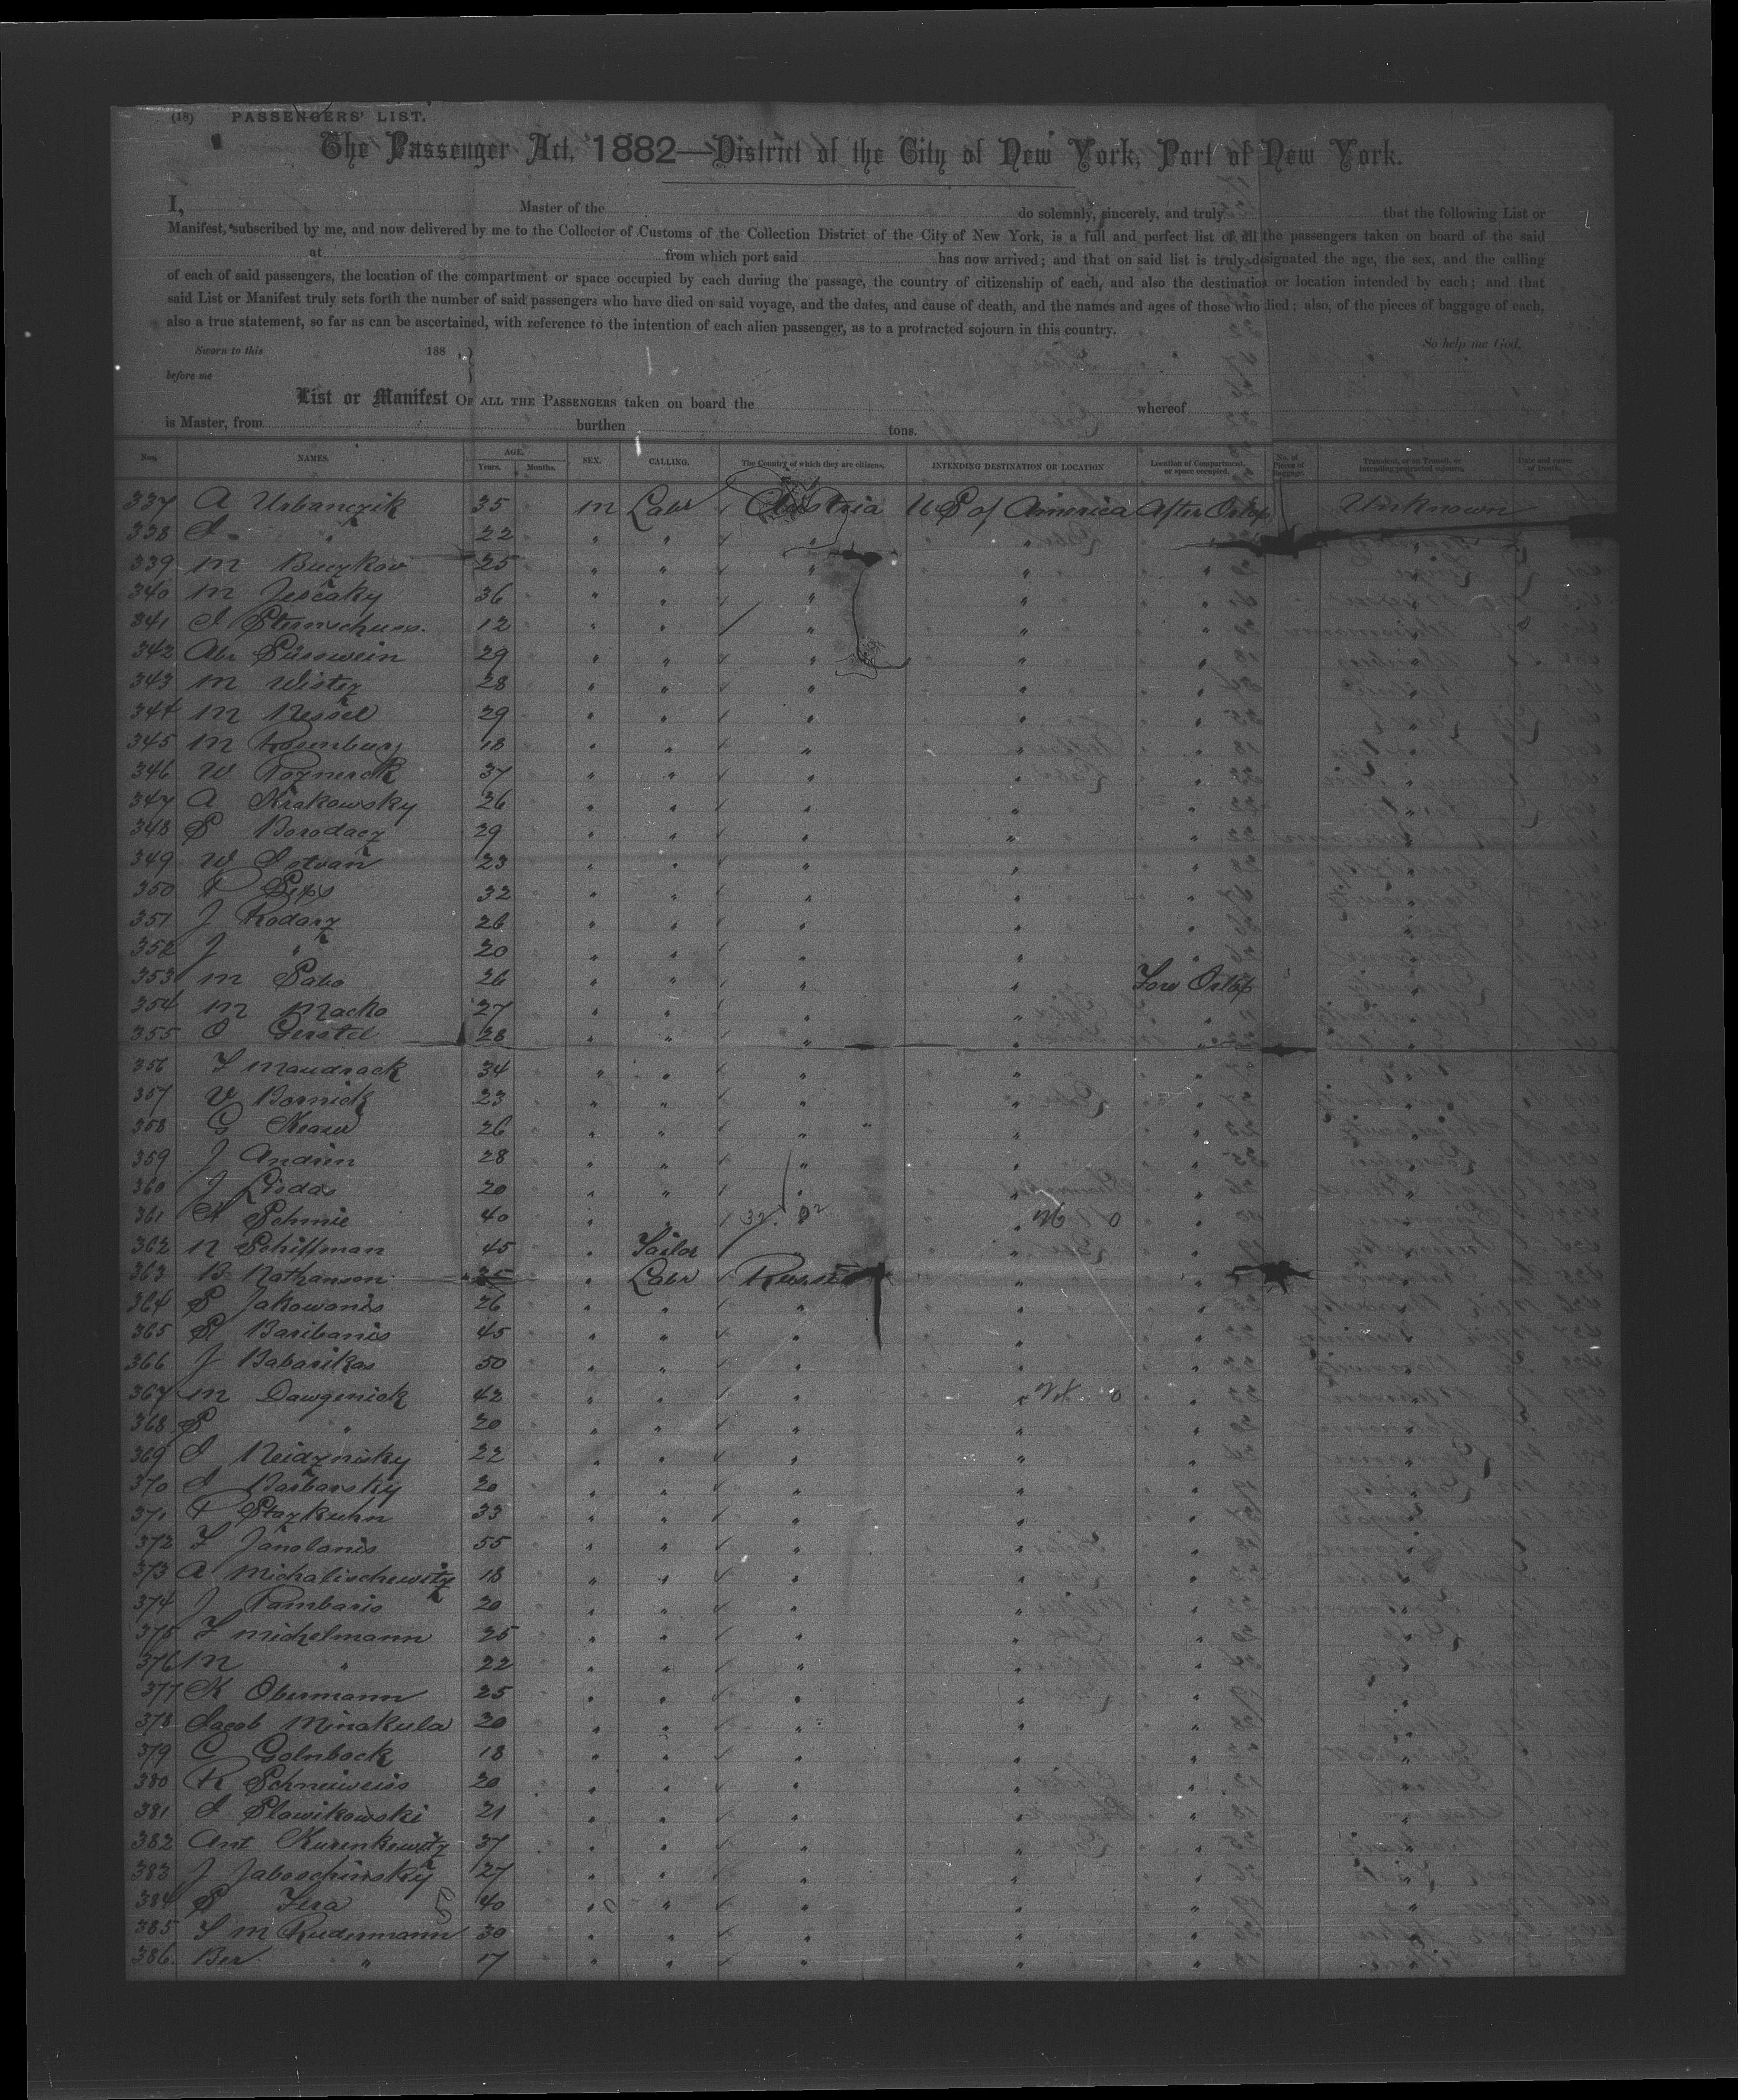 (18) PASSENGERS' LIST.
The Passenger Act, 1882—District of the City of New York, Port of New York.
I, Master of the do solemnly, sincerely, and truly that the following List or
Manifest, subscribed by me, and now delivered by me to the Collector of Customs of the Collection District of the City of New York, is a full and perfect list of all the passengers taken on board of the said
at from which port said has now arrived; and that on said list is truly designated the age, the sex, and the calling
of each of said passengers, the location of the compartment or space occupied by each during the passage, the country of citizenship of each, and also the destination or location intended by each; and that
said List or Manifest truly sets forth the number of said passengers who have died on said voyage, and the dates, and cause of death, and the names and ages of those who died; also, of the pieces of baggage of each,
also a true statement, so far as can be ascertained, with reference to the intention of each alien passenger, as to a protracted sojourn in this country.
Sworn to this 188 , } So help me God.
before me
List or Manifest OF ALL THE PASSENGERS taken on board the whereof
is Master, from burthen tons.
Nos. NAMES. AGE. Years. Months. SEX. CALLING. The Country of which they are citizens. INTENDING DESTINATION OR LOCATION Location of Compartment, or space occupied. No. of Pieces of Baggage. Transient, or on Transit, or intending protracted sojourn. Date and cause of Death.
337 A Urbanczik 35 m Labr Austria U S of America After Orlop Unknown
338 J. " 22 " " " " " "
339 M Buczkov 25 " " " " " "
340 M Jescaky 36 " " " " " "
341 J Sternschuss. 12 " " " " " "
342 Abr Süsswein 29 " " " " " "
343 M Wistez 28 " " " " " "
344 M Nessel 29 " " " " " "
345 M Rosenburg 18 " " " " " "
346 W Poznerck 37 " " " " " "
347 A Krakowsky 26 " " " " " "
348 S Borodacz 29 " " " " " "
349 W Istvan 23 " " " " " "
350 P 32 " " " " " "
351 J Kodarz 26 " " " " " "
352 J " 20 " " " " " "
353 M Sabo 26 " " " " Forw Orlop "
354 M Macko 27 " " " " " "
355 O Gerstel 28 " " " " " "
356 F Maudrack 34 " " " " " "
357 V Bornick 23 " " " " " "
358 G 26 " " " " " "
359 J Andren 28 " " " " " "
360 J Lisdas 20 " " " " " "
361 A Schmie 40 " " " " " "
362 N Schiffman 45 " Tailor " " " "
363 B Nathanson 35 " Labr Russia " " "
364 S Jakowanis 26 " " " " " "
365 St Baribanis 45 " " " " " "
366 J Babarikas 50 " " " " " "
367 M Dawgenick 42 " " " " " "
368 S " 20 " " " " " "
369 J Neidznisky 22 " " " " " "
370 J Barbarsky 20 " " " " " "
371 P Stazkuhn 33 " " " " " "
372 F Janolanis 55 " " " " " "
373 A Michalischewitz 18 " " " " " "
374 J Pambaris 20 " " " " " "
375 F Michelmann 25 " " " " " "
376 M " 22 " " " " " "
377 K Obermann 25 " " " " " "
378 Jacob Minakula 20 " " " " " "
379 C Golnback 18 " " " " " "
380 R Schneiweiss 20 " " " " " "
381 J Slawikowski 21 " " " " " "
382 Ant Kurenkewitz 37 " " " " " "
383 J Jaboschinsky 27 " " " " " "
384 S Fera 40 " " " " " "
385 F M Rudermann 30 " " " " " "
386. Ber " 17 " " " " " "